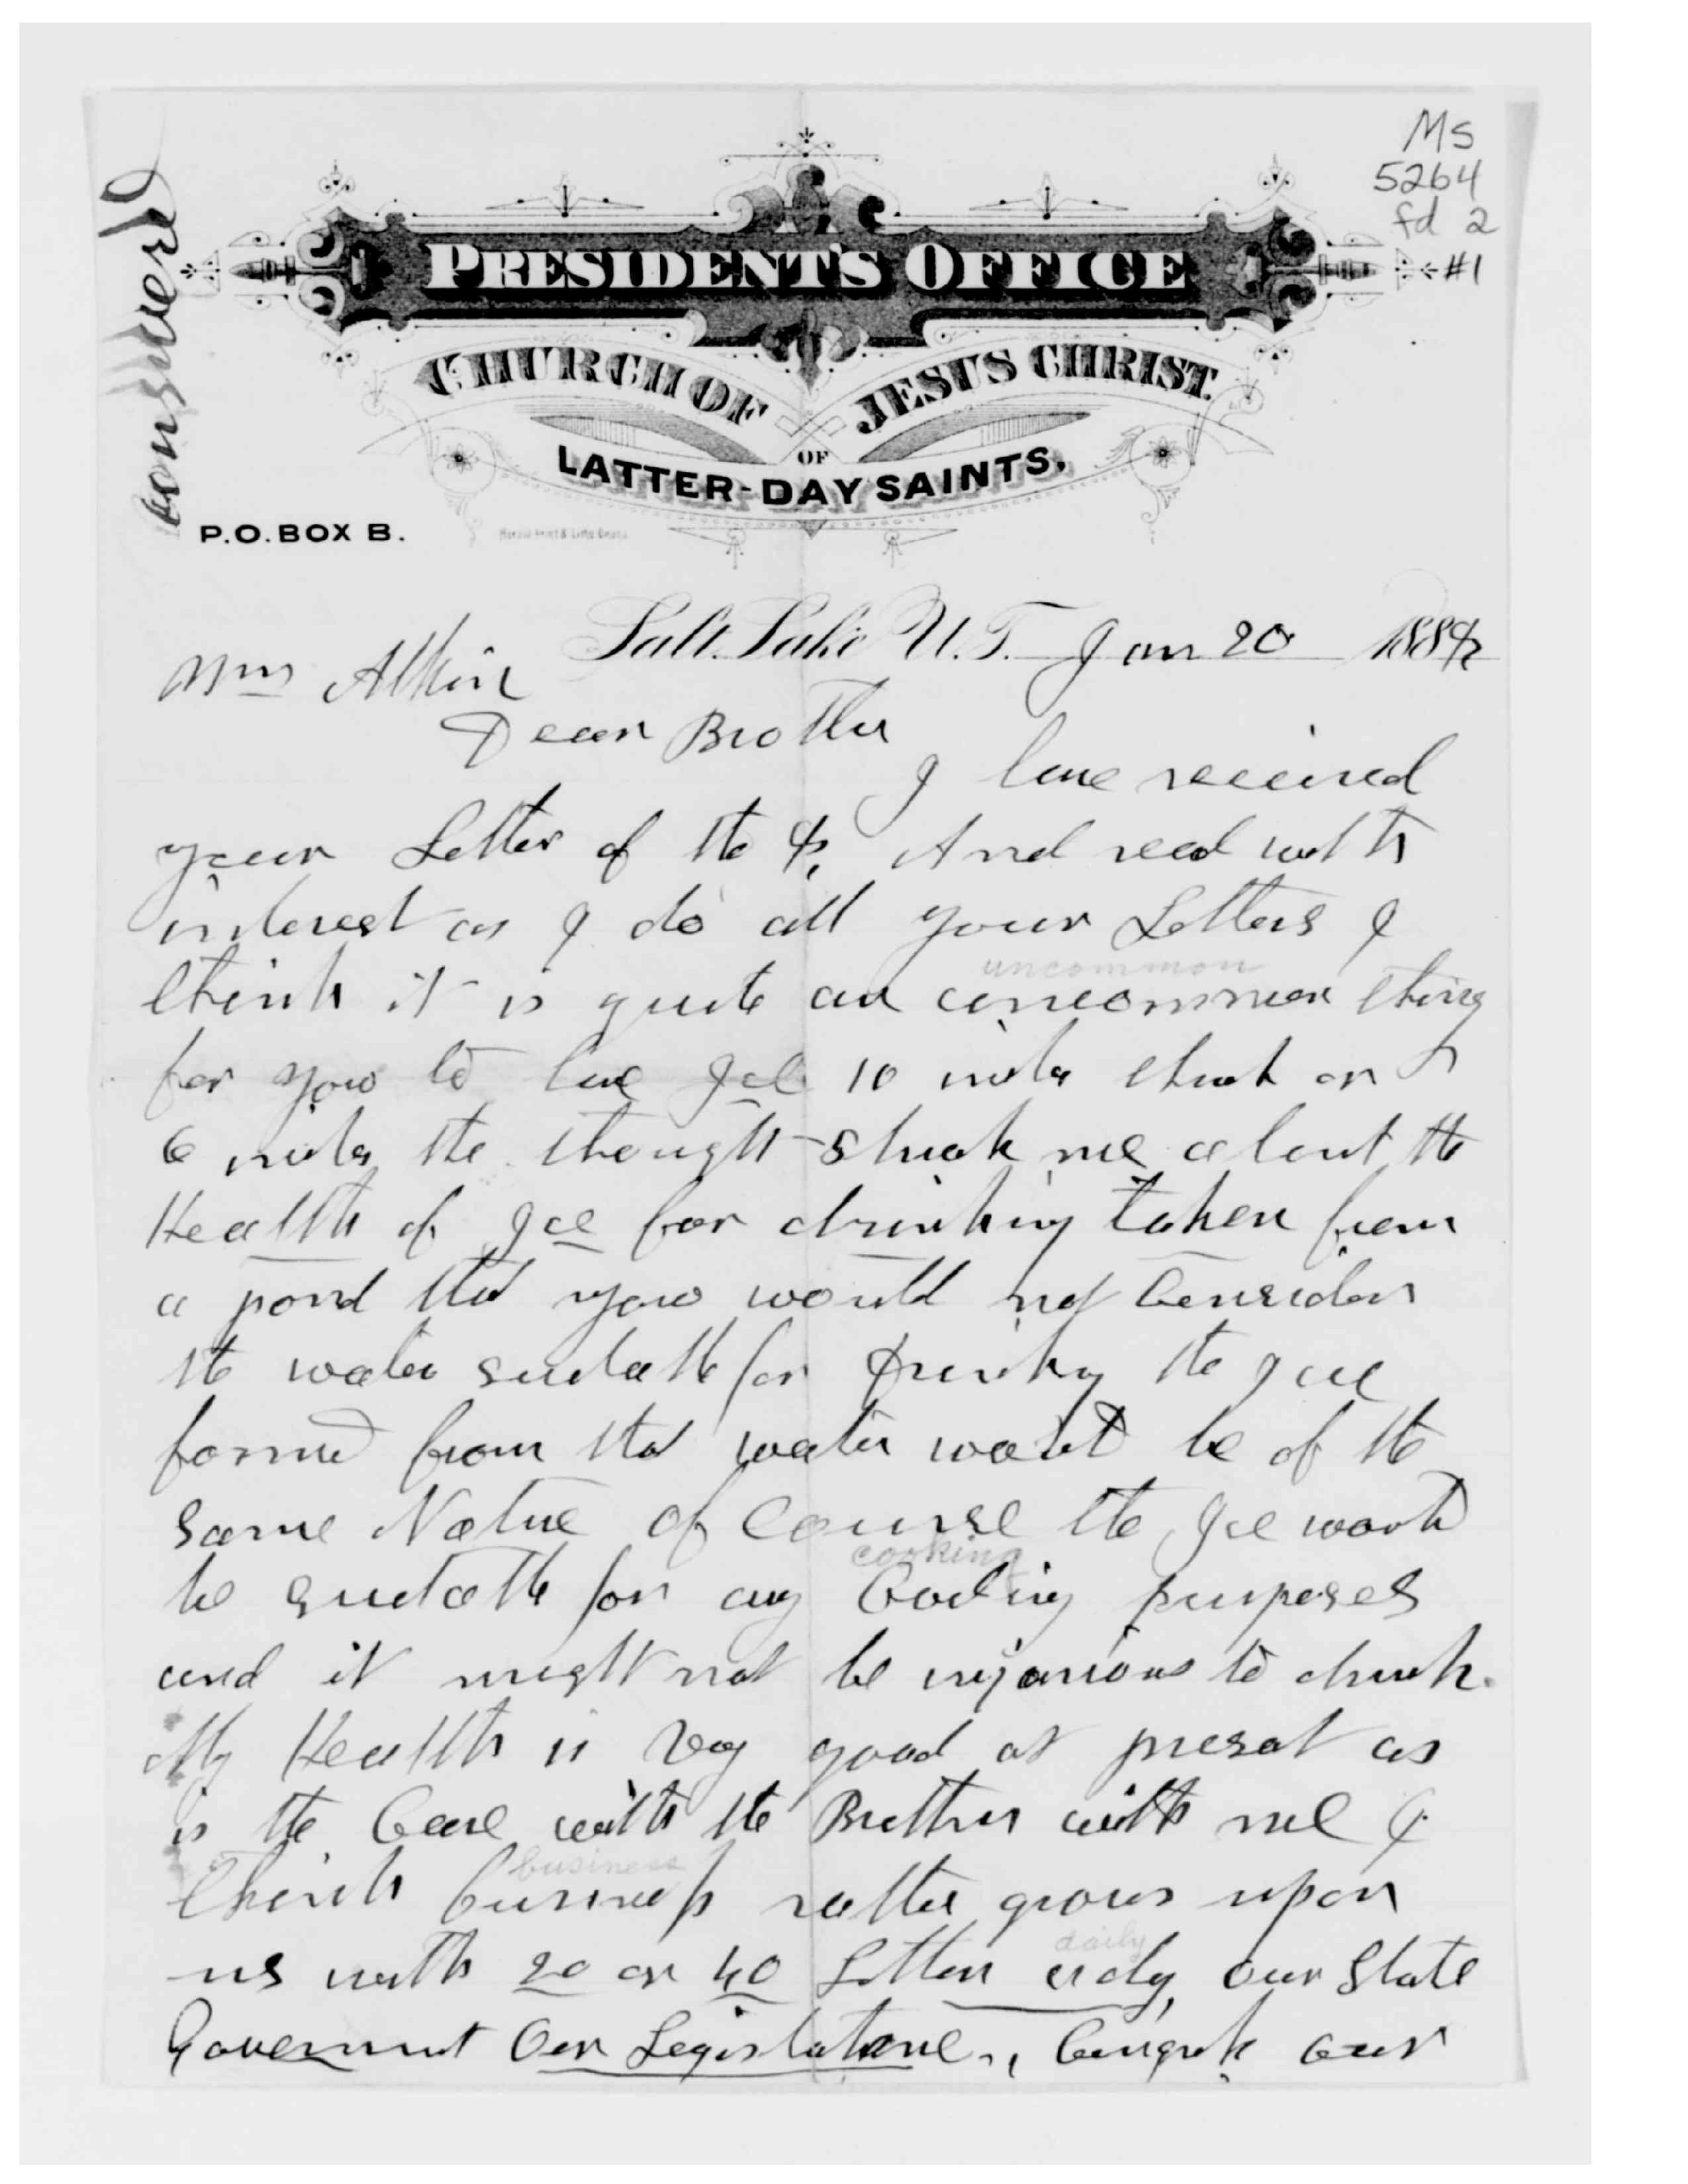 Ms
5264
fd 2
#1
PRESIDENT'S OFFICE
CHURCH OF JESUS CHRIST
OF
LATTER-DAY SAINTS.
P.O. BOX B.
Salt Lake U.T. Jan 20 188
Wm Atkin
Dear Brother
I have received
your Letter of the And read with
interest as I do all your Letters I
uncommon
think it is quite an uncommon thing
for you to have Ice 10 inches thick or
6 inches the thought struck me about the
Health of Ice for drinking taken from
a pond that you would not Consider
the water suitable for drinking the Ice
formed from that water would be of the
same Nature of Course the Ice would
cooking
be suitable for any Cooling purposes
and it might not be injurious to drink.
My Health is very good at present as
is the Case with the Brethren with me I
business
think business rather grows upon
daily
us with 20 or 40 Letters a day, our State
Government Our Legislature, Congress our